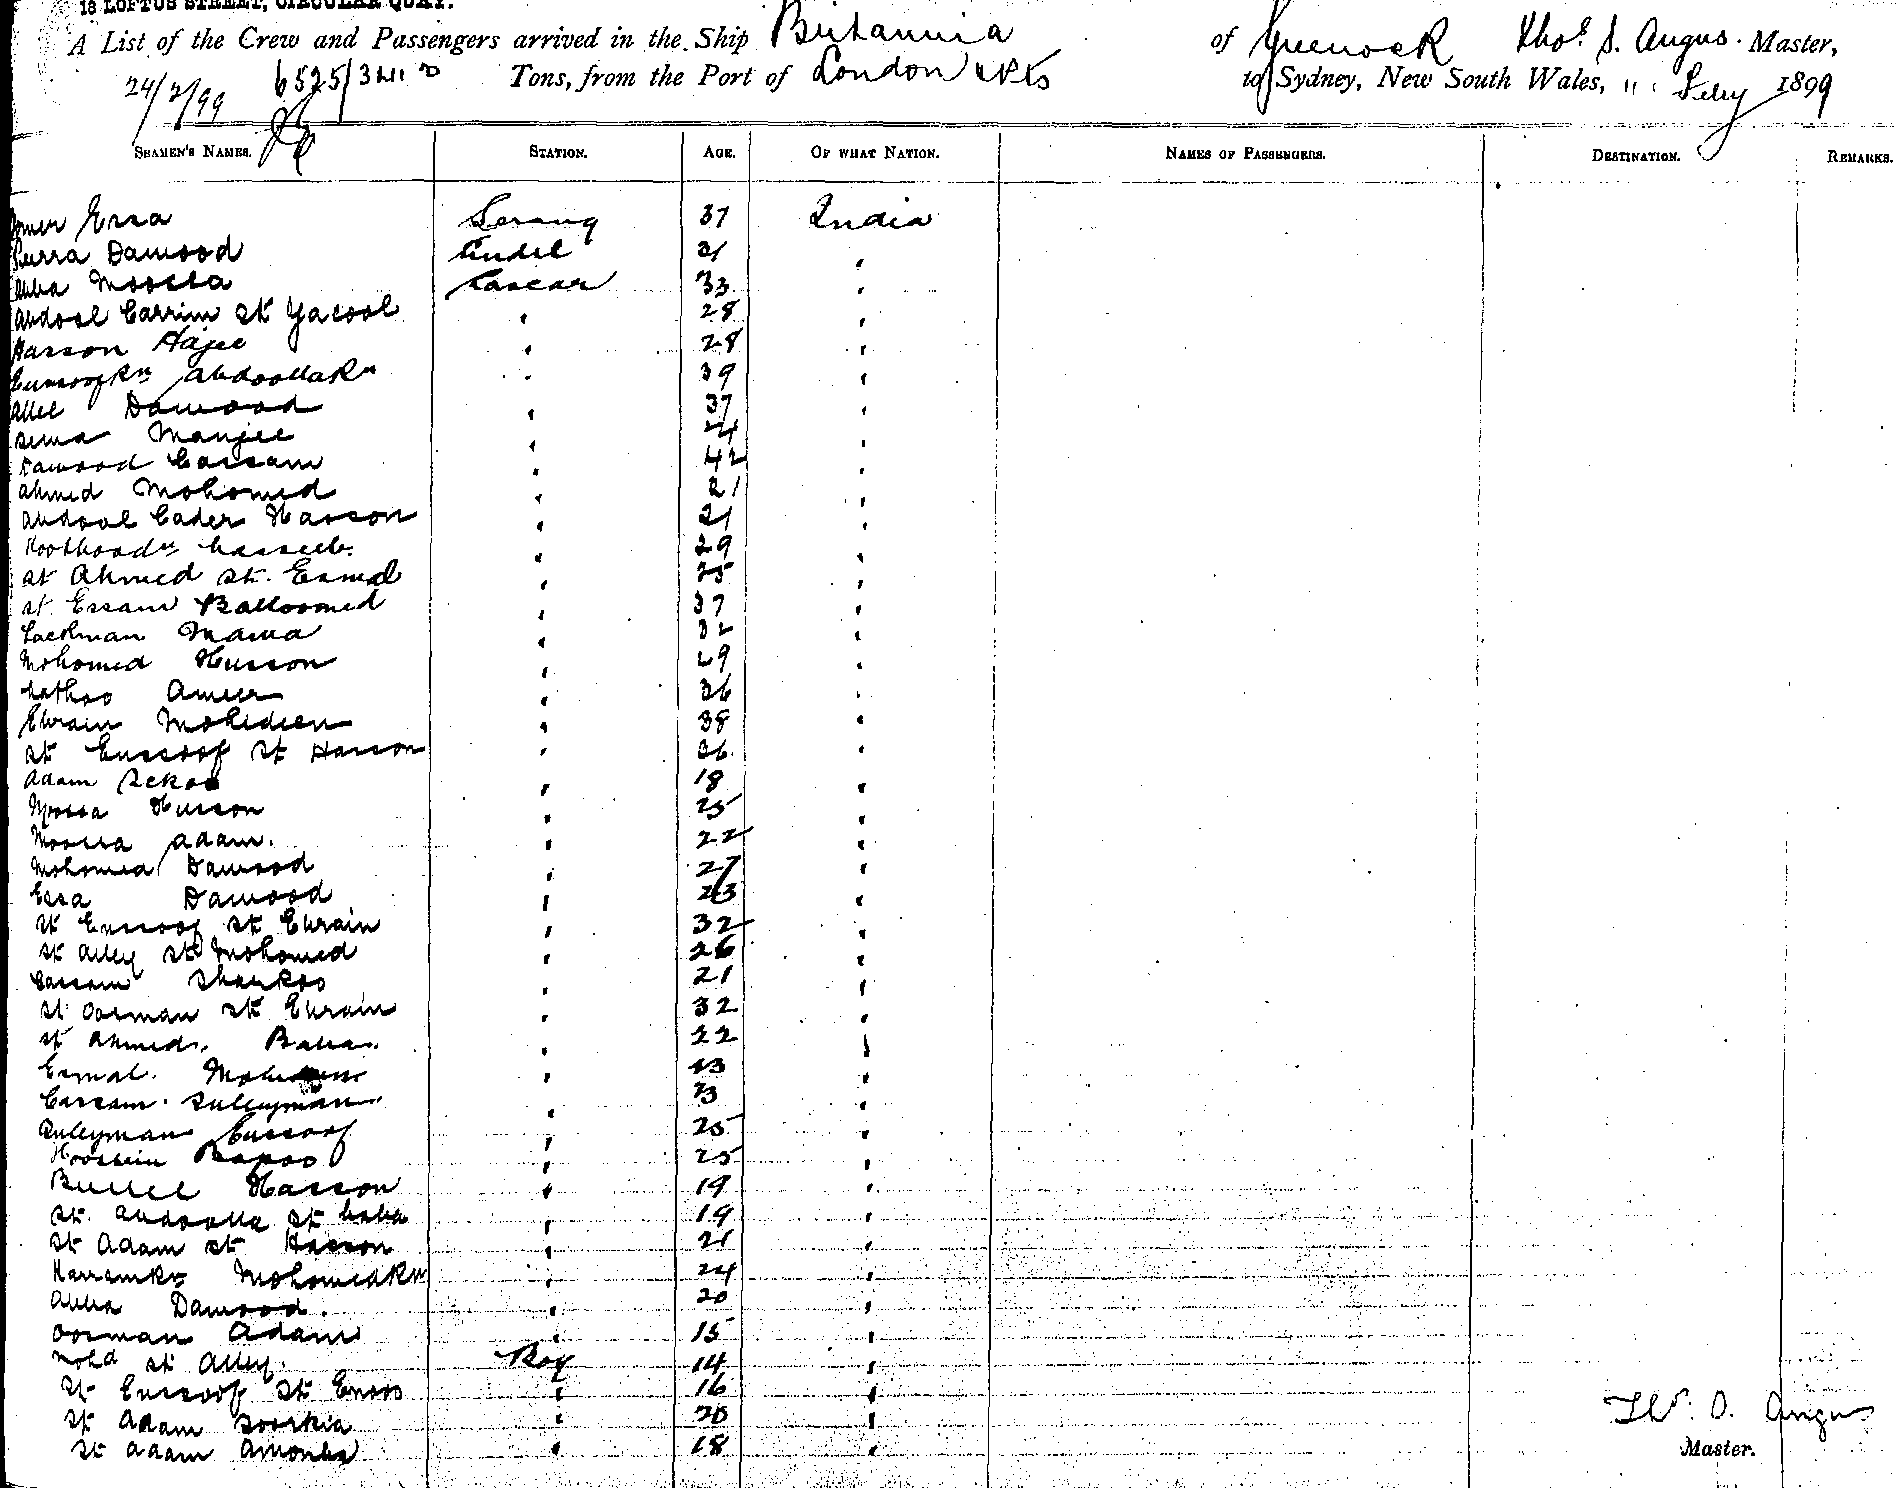 18 LOFTUS STREET, CIRCULAR QUAY.
A List of the Crew and Passengers arrived in the Ship Britannia of Greenock Thos. S. Angus. Master,
24/2/99 6525/3411 Tons, from the Port of London & Pts to Sydney, New South Wales, Feby 1899
SEAMEN'S NAMES. STATION. AGE. OF WHAT NATION. NAMES OF PASSENGERS. DESTINATION. REMARKS.
Essa Serang 37 India
Dawood Tindel 31 "
Moosa Lascar 33 "
Abdool Carrim St Yacool " 28 "
Hasson Hajee " 28 "
Abdoolla Kn " 39 "
Allee Dawood " 37 "
Manjee " 24 "
Dawood Cassam " 42 "
Ahmed Mohomed " 21 "
Abdool Cader Hasson " 21 "
" 29 "
St Ahmed St. Esmal " 25 "
St. Essam Balloomed " 37 "
Lackman Mama " 32 "
Mohomed Husson " 29 "
Nathoo Ameer " 36 "
Ebrain Mohideen " 38 "
St Eussoof St Hasson " 36 "
Adam " 18 "
Moosa Husson " 25 "
Moossa Adam. " 22 "
Mohomed Dawood " 27 "
Essa Dawood " 23 "
St Eussoof St Ebrain " 32 "
St Alley St Mohomed " 26 "
Cassam " 21 "
St Oosman St Ebrain " 32 "
St Ahmed. Bawa. " 22 "
Esmal. " "
Cassam. Suleyman. " 23 "
Suleyman Eussoof " 25 "
Hoossein Bapoo " 25 "
Hasson " 19 "
St. Abdoolla St Baba " 19 "
St Adam St Hasson " 21 "
Mohomed Kn " 24 "
Abba Dawood. " 20 "
Oosman Adam " 15 "
Mohd St Alley. Boy 14 "
St Eussoof St Enoos " 16 "
St Adam " 20 "
St Adam " 18 "
Angus
Master.